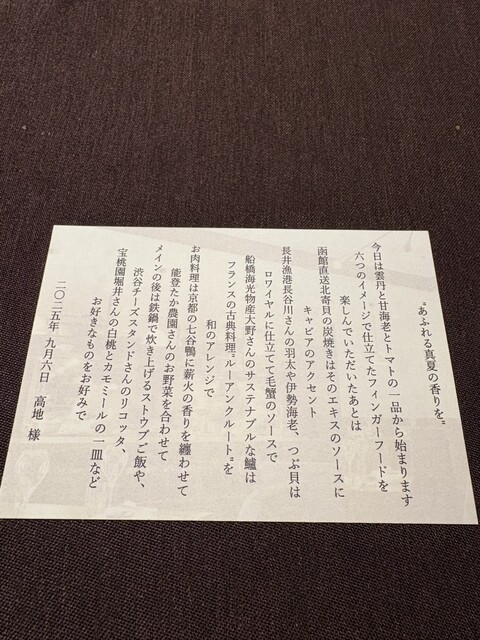 “あふれる真夏の香りを”
今日は雲丹と甘海老とトマトの一品から始まります
六つのイメージで仕立てたフィンガーフードを
楽しんでいただいたあとは
函館直送北寄貝の炭焼きはそのエキスのソースに
キャビアのアクセント
長井漁港長谷川さんの羽太や伊勢海老、つぶ貝は
ロワイヤルに仕立てて毛蟹のソースで
船橋海光物産大野さんのサステナブルな鱸は
フランスの古典料理“ルーアンクルート”を
和のアレンジで
お肉料理は京都の七谷鴨に薪火の香りを纏わせて
能登たか農園さんのお野菜を合わせて
メインの後は鉄鍋で炊き上げるストウブご飯や、
渋谷チーズスタンドさんのリコッタ、
宝桃園堀井さんの白桃とカモミールの一皿など
お好きなものをお好みで
二〇二五年 九月六日 高地 様